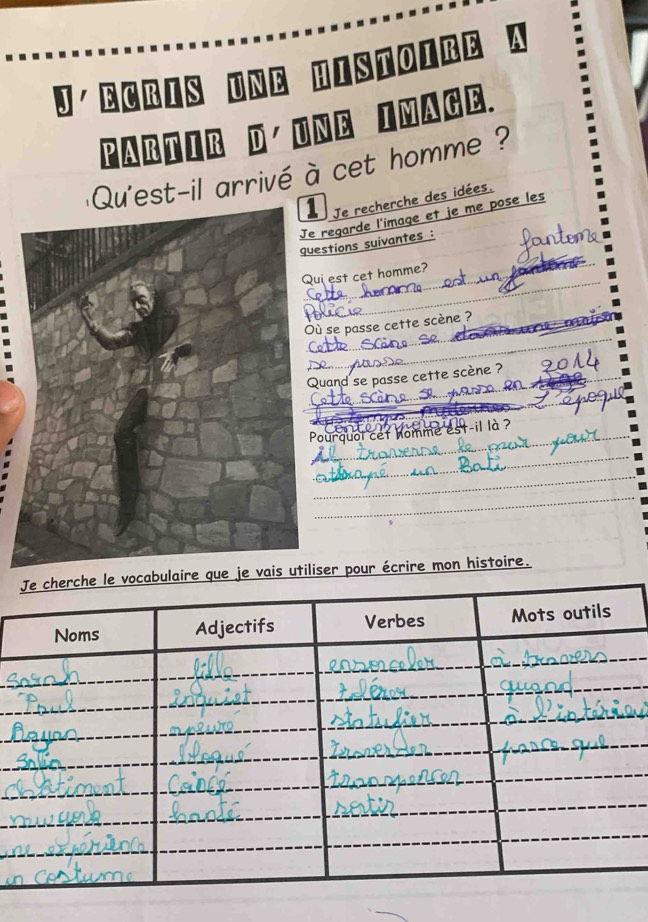 J'ECRIS UNE HISTOIRE A
PARTIR D'UNE IMAGE.
Qu'est-il arrivé à cet homme ?
1 Je recherche des idées.
Je regarde l'image et je me pose les
questions suivantes :
Qui est cet homme?
fantome
Cette homme est un
Policie
Où se passe cette scène ?
Cette scène se
se passe
Quand se passe cette scène ?
2014
Cette scène se passe en
L'époque
contemporaine
Pourquoi cet homme est-il là ?
il traverse le mur pour
attrapé un Bati
Je cherche le vocabulaire que je vais utiliser pour écrire mon histoire.
Noms Adjectifs Verbes Mots outils
Sarah fille ensorceler à travers
Paul inquiet quand
Rayan apeuré à l'intérieu
bloqué parce que
chatiment Coincé transpercer
new york hanté sortir
une expérience
un costume